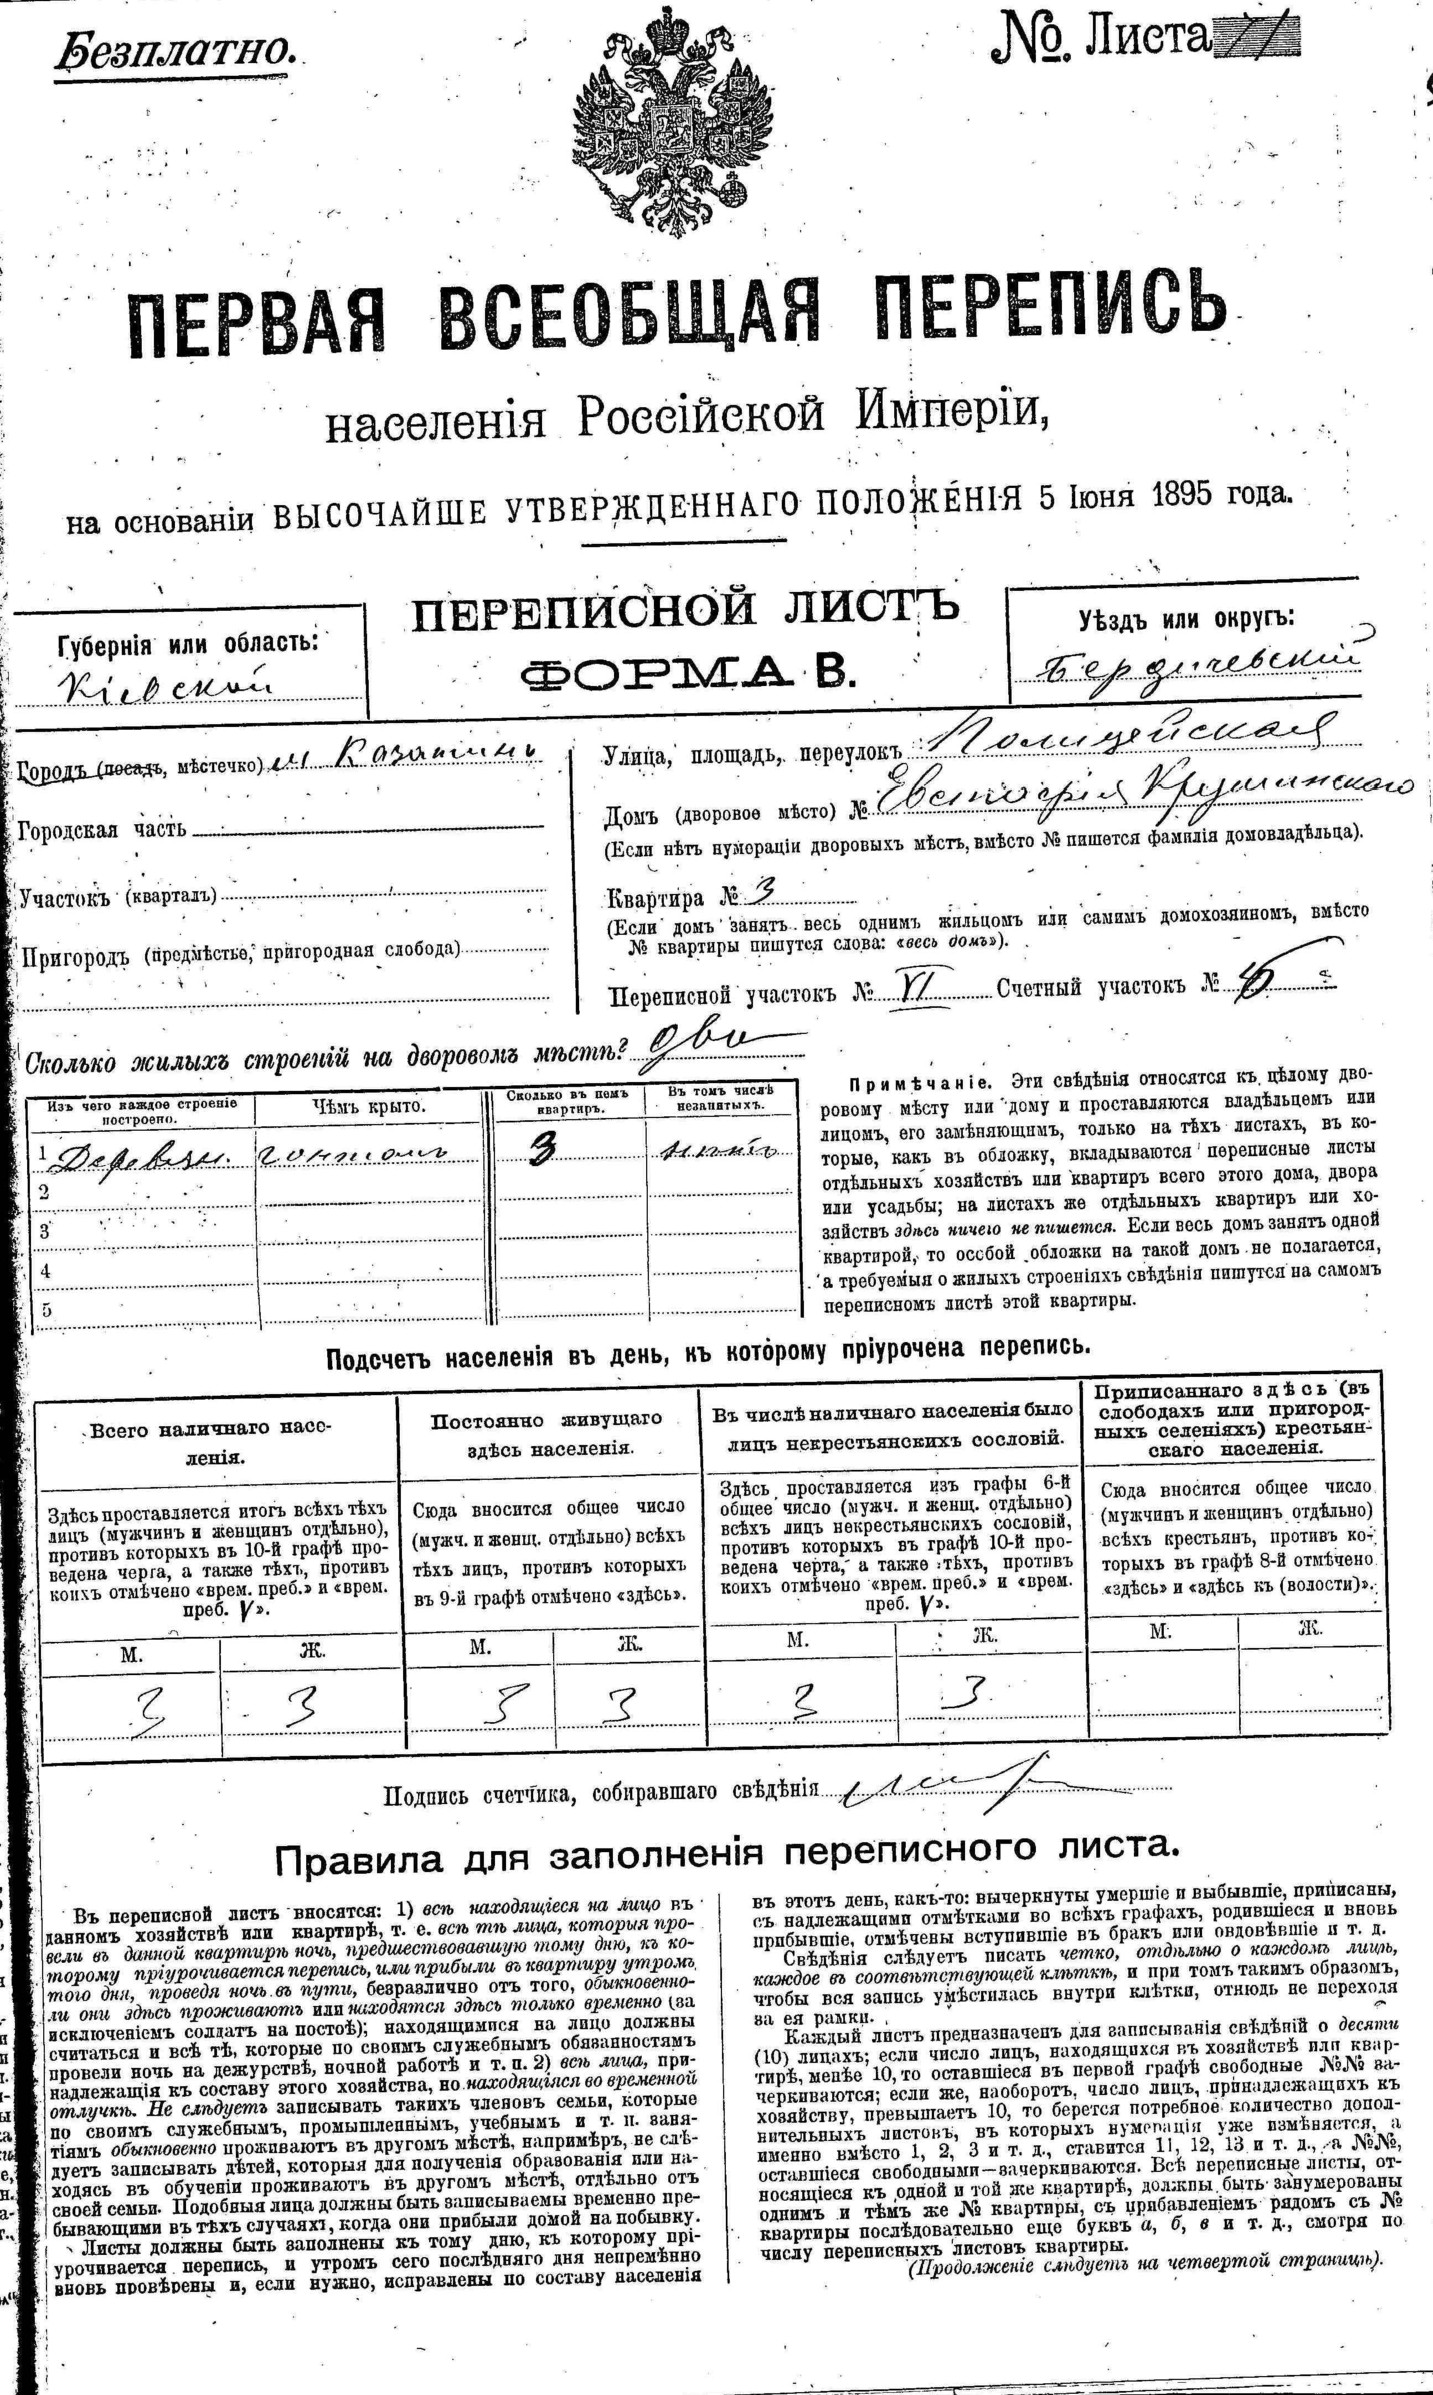 Безплатно.
№. Листа
ПЕРВАЯ ВСЕОБЩАЯ ПЕРЕПИСЬ
населенія Россійской Имперіи,
на основаніи ВЫСОЧАЙШЕ УТВЕРЖДЕННАГО ПОЛОЖЕНІЯ 5 Іюня 1895 года.
ПЕРЕПИСНОЙ ЛИСТЪ
ФОРМА В.
Губернія или область:
Кіевской
Уѣздъ или округъ:
Бердичевскій
Городъ (посадъ, мѣстечко) м Казатинъ
Городская часть
Участокъ (кварталъ)
Пригородъ (предмѣстье, пригородная слобода)
Улица, площадь, переулокъ Полицейская
Домъ (дворовое мѣсто) № Евстафія Крушинскаго
(Если нѣтъ нумераціи дворовыхъ мѣстъ, вмѣсто № пишется фамилія домовладѣльца).
Квартира № 3
(Если домъ занятъ весь однимъ жильцомъ или самимъ домохозяиномъ, вмѣсто
№ квартиры пишутся слова: «весь домъ»).
Переписной участокъ № VI Счетный участокъ №
Сколько жилыхъ строеній на дворовомъ мѣстѣ? два
Изъ чего каждое строеніе
построено.
Чѣмъ крыто.
Сколько въ немъ
квартиръ.
Въ томъ числѣ
незанятыхъ.
1 Деревян. гонтомъ 3 нѣтъ
2
3
4
5
Примѣчаніе. Эти свѣдѣнія относятся къ цѣлому дво-
ровому мѣсту или дому и проставляются владѣльцемъ или
лицомъ, его замѣняющимъ, только на тѣхъ листахъ, въ ко-
торые, какъ въ обложку, вкладываются переписные листы
отдѣльныхъ хозяйствъ или квартиръ всего этого дома, двора
или усадьбы; на листахъ же отдѣльныхъ квартиръ или хо-
зяйствъ здѣсь ничего не пишется. Если весь домъ занятъ одной
квартирой, то особой обложки на такой домъ не полагается,
а требуемыя о жилыхъ строеніяхъ свѣдѣнія пишутся на самомъ
переписномъ листѣ этой квартиры.
Подсчетъ населенія въ день, къ которому пріурочена перепись.
Всего наличнаго насе-
ленія.
Постоянно живущаго
здѣсь населенія.
Въ числѣ наличнаго населенія было
лицъ некрестьянскихъ сословій.
Приписаннаго здѣсь (въ
слободахъ или пригород-
ныхъ селеніяхъ) крестьян-
скаго населенія.
Здѣсь проставляется итогъ всѣхъ тѣхъ
лицъ (мужчинъ и женщинъ отдѣльно),
противъ которыхъ въ 10-й графѣ про-
ведена черта, а также тѣхъ, противъ
коихъ отмѣчено «врем. преб.» и «врем.
преб. V».
Сюда вносится общее число
(мужч. и женщ. отдѣльно) всѣхъ
тѣхъ лицъ, противъ которыхъ
въ 9-й графѣ отмѣчено «здѣсь».
Здѣсь проставляется изъ графы 6-й
общее число (мужч. и женщ. отдѣльно)
всѣхъ лицъ некрестьянскихъ сословій,
противъ которыхъ въ графѣ 10-й про-
ведена черта, а также тѣхъ, противъ
коихъ отмѣчено «врем. преб.» и «врем.
преб. V».
Сюда вносится общее число
(мужчинъ и женщинъ отдѣльно)
всѣхъ крестьянъ, противъ ко-
торыхъ въ графѣ 8-й отмѣчено
«здѣсь» и «здѣсь къ (волости)».
М. Ж. М. Ж. М. Ж. М. Ж.
3 3 3 3 3 3
Подпись счетчика, собиравшаго свѣдѣнія
Правила для заполненія переписного листа.
Въ переписной листъ вносятся: 1) всѣ находящіеся на лицо въ
данномъ хозяйствѣ или квартирѣ, т. е. всѣ тѣ лица, которыя про-
вели въ данной квартирѣ ночь, предшествовавшую тому дню, къ ко-
торому пріурочивается перепись, или прибыли въ квартиру утромъ
того дня, проведя ночь въ пути, безразлично отъ того, обыкновенно-
ли они здѣсь проживаютъ или находятся здѣсь только временно (за
исключеніемъ солдатъ на постоѣ); находящимися на лицо должны
считаться и всѣ тѣ, которые по своимъ служебнымъ обязанностямъ
провели ночь на дежурствѣ, ночной работѣ и т. п. 2) всѣ лица, при-
надлежащія къ составу этого хозяйства, но находящіяся во временной
отлучкѣ. Не слѣдуетъ записывать такихъ членовъ семьи, которые
по своимъ служебнымъ, промышленнымъ, учебнымъ и т. п. заня-
тіямъ обыкновенно проживаютъ въ другомъ мѣстѣ, напримѣръ, не слѣ-
дуетъ записывать дѣтей, которыя для полученія образованія или на-
ходясь въ обученіи проживаютъ въ другомъ мѣстѣ, отдѣльно отъ
своей семьи. Подобныя лица должны быть записываемы временно пре-
бывающими въ тѣхъ случаяхъ, когда они прибыли домой на побывку.
Листы должны быть заполнены къ тому дню, къ которому прі-
урочивается перепись, и утромъ сего послѣдняго дня непремѣнно
вновь провѣрены и, если нужно, исправлены по составу населенія
въ этотъ день, какъ-то: вычеркнуты умершіе и выбывшіе, приписаны,
съ надлежащими отмѣтками во всѣхъ графахъ, родившіеся и вновь
прибывшіе, отмѣчены вступившіе въ бракъ или овдовѣвшіе и т. д.
Свѣдѣнія слѣдуетъ писать четко, отдѣльно о каждомъ лицѣ,
каждое въ соотвѣтствующей клѣткѣ, и при томъ такимъ образомъ,
чтобы вся запись умѣстилась внутри клѣтки, отнюдь не переходя
за ея рамки.
Каждый листъ предназначенъ для записыванія свѣдѣній о десяти
(10) лицахъ; если число лицъ, находящихся въ хозяйствѣ или квар-
тирѣ, менѣе 10, то оставшіеся въ первой графѣ свободные №№ за-
черкиваются; если же, наоборотъ, число лицъ, принадлежащихъ къ
хозяйству, превышаетъ 10, то берется потребное количество допол-
нительныхъ листовъ, въ которыхъ нумерація уже измѣняется, а
именно вмѣсто 1, 2, 3 и т. д., ставится 11, 12, 13 и т. д., а №№,
оставшіеся свободными—зачеркиваются. Всѣ переписные листы, от-
носящіеся къ одной и той же квартирѣ, должны быть занумерованы
однимъ и тѣмъ же № квартиры, съ прибавленіемъ рядомъ съ №
квартиры послѣдовательно еще буквъ а, б, в и т. д., смотря по
числу переписныхъ листовъ квартиры.
(Продолженіе слѣдуетъ на четвертой страницѣ).